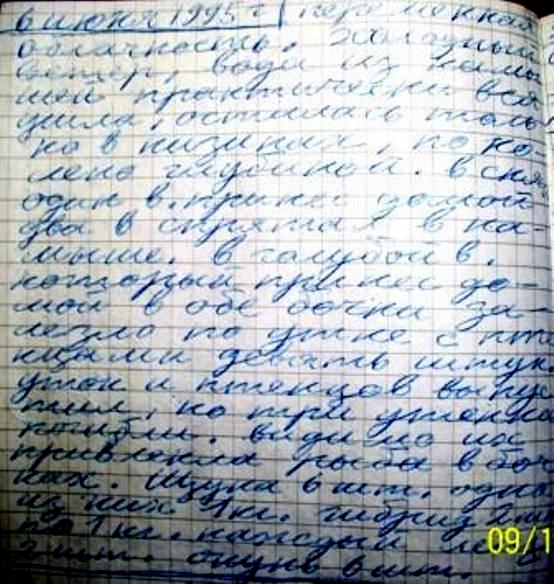 6 июня 1995 г переменная
облачность. Холодный
ветер, вода из камы
шей практически вся
ушла, осталась толь
ко в низинах, по ко
лено глубиной. в снял
один в. принес домой
два в спрятал в ка-
мыше. в голубой в.
который принес до-
мой в обе бочки за-
лезло по утке с пте
нцами девять штук
уток и птенцов выпус
тил, но три утенка
погибли. видимо их
привлекла рыба в боч
ках. щука 6 шт. одна
из них 4 кг. гибрид 2 шт
по 1 кг. каждый
2 шт. окунь 6 шт.
09/1